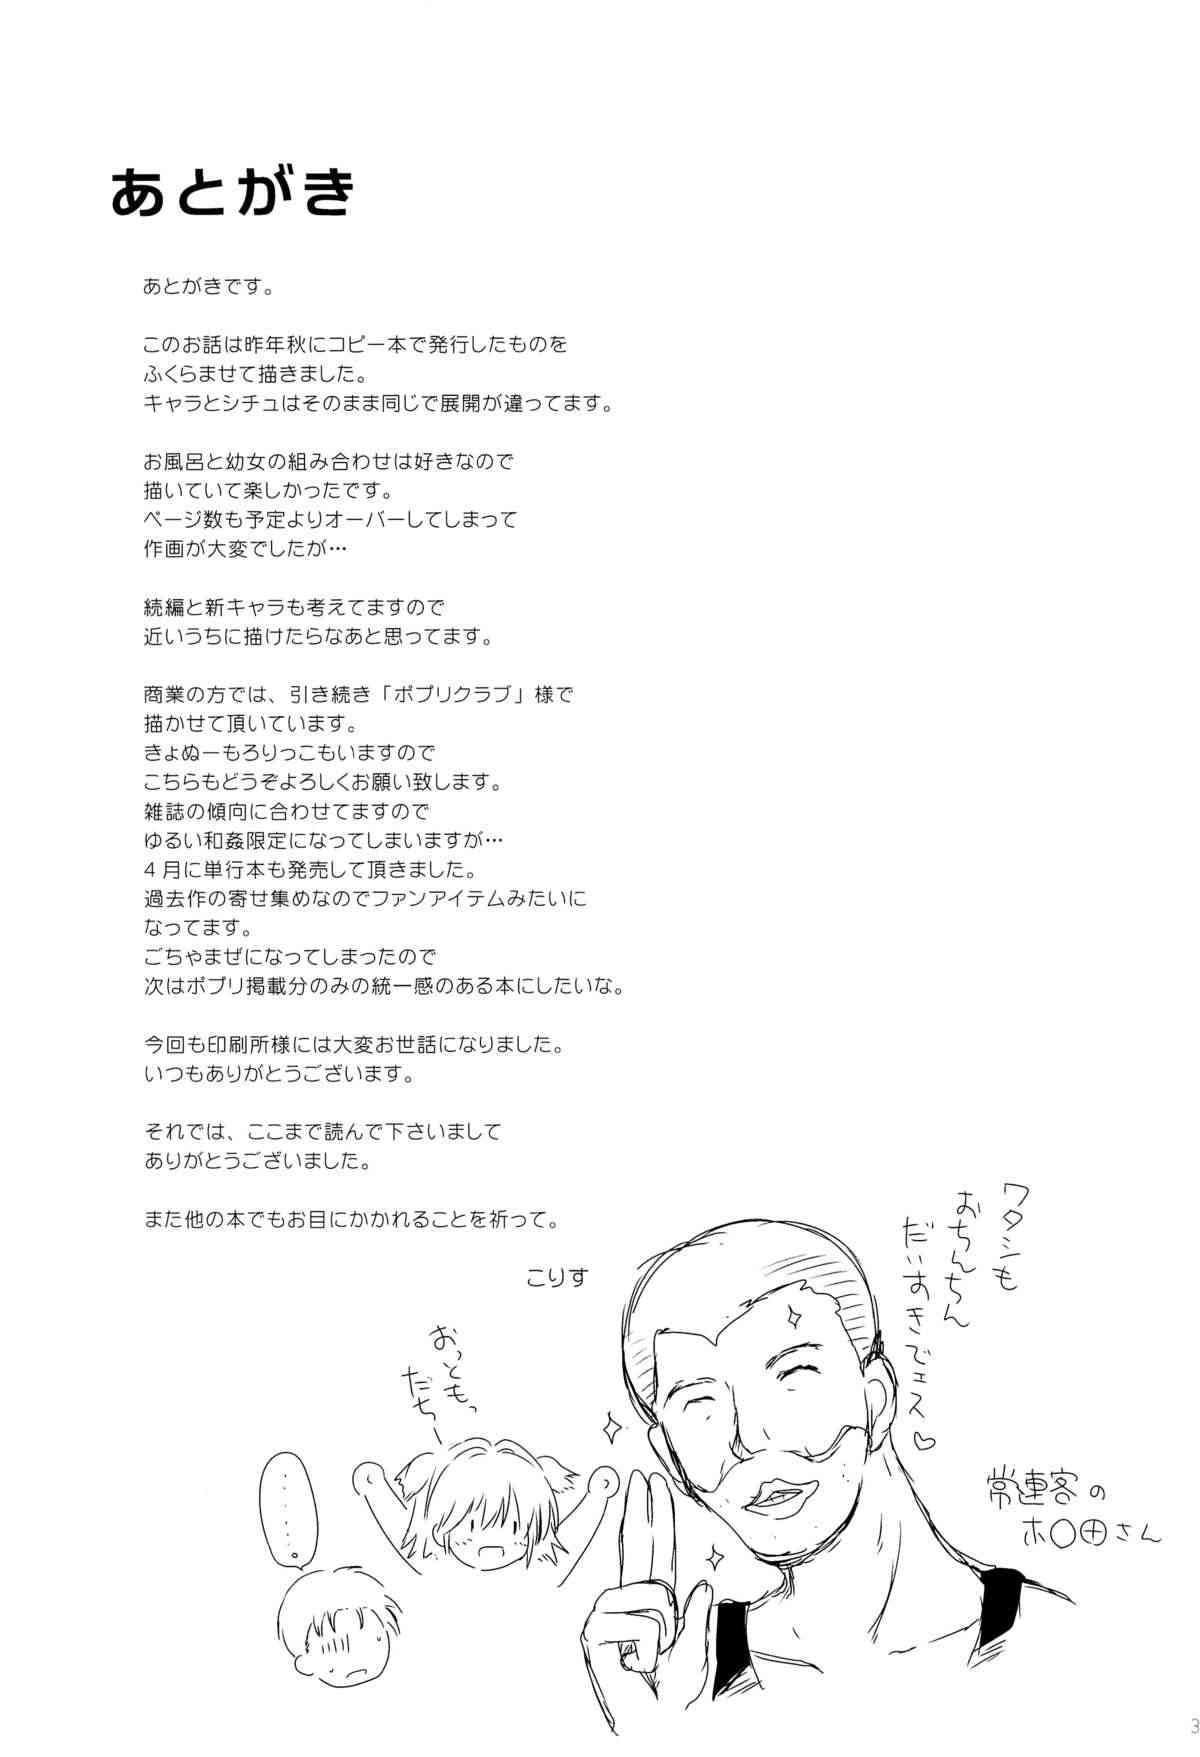 あとがき
あとがきです。
このお話は昨年秋にコピー本で発行したものを
ふくらませて描きました。
キャラとシチュはそのまま同じで展開が違ってます。
お風呂と幼女の組み合わせは好きなので
描いていて楽しかったです。
ページ数も予定よりオーバーしてしまって
作画が大変でしたが…
続編と新キャラも考えてますので
近いうちに描けたらなあと思ってます。
商業の方では、引き続き「ポプリクラブ」様で
描かせて頂いています。
きょぬーもろりっこもいますので
こちらもどうぞよろしくお願い致します。
雑誌の傾向に合わせてますので
ゆるい和姦限定になってしまいますが…
4月に単行本も発売して頂きました。
過去作の寄せ集めなのでファンアイテムみたいに
なってます。
ごちゃまぜになってしまったので
次はポプリ掲載分のみの統一感のある本にしたいな。
今回も印刷所様には大変お世話になりました。
いつもありがとうございます。
それでは、ここまで読んで下さいまして
ありがとうございました。
また他の本でもお目にかかれることを祈って。
こりす
ワタシも
おちんちん
だいすきでェス♡
常連客の
ホ〇田さん
おっとも、
だちー
・・・・・・。
3